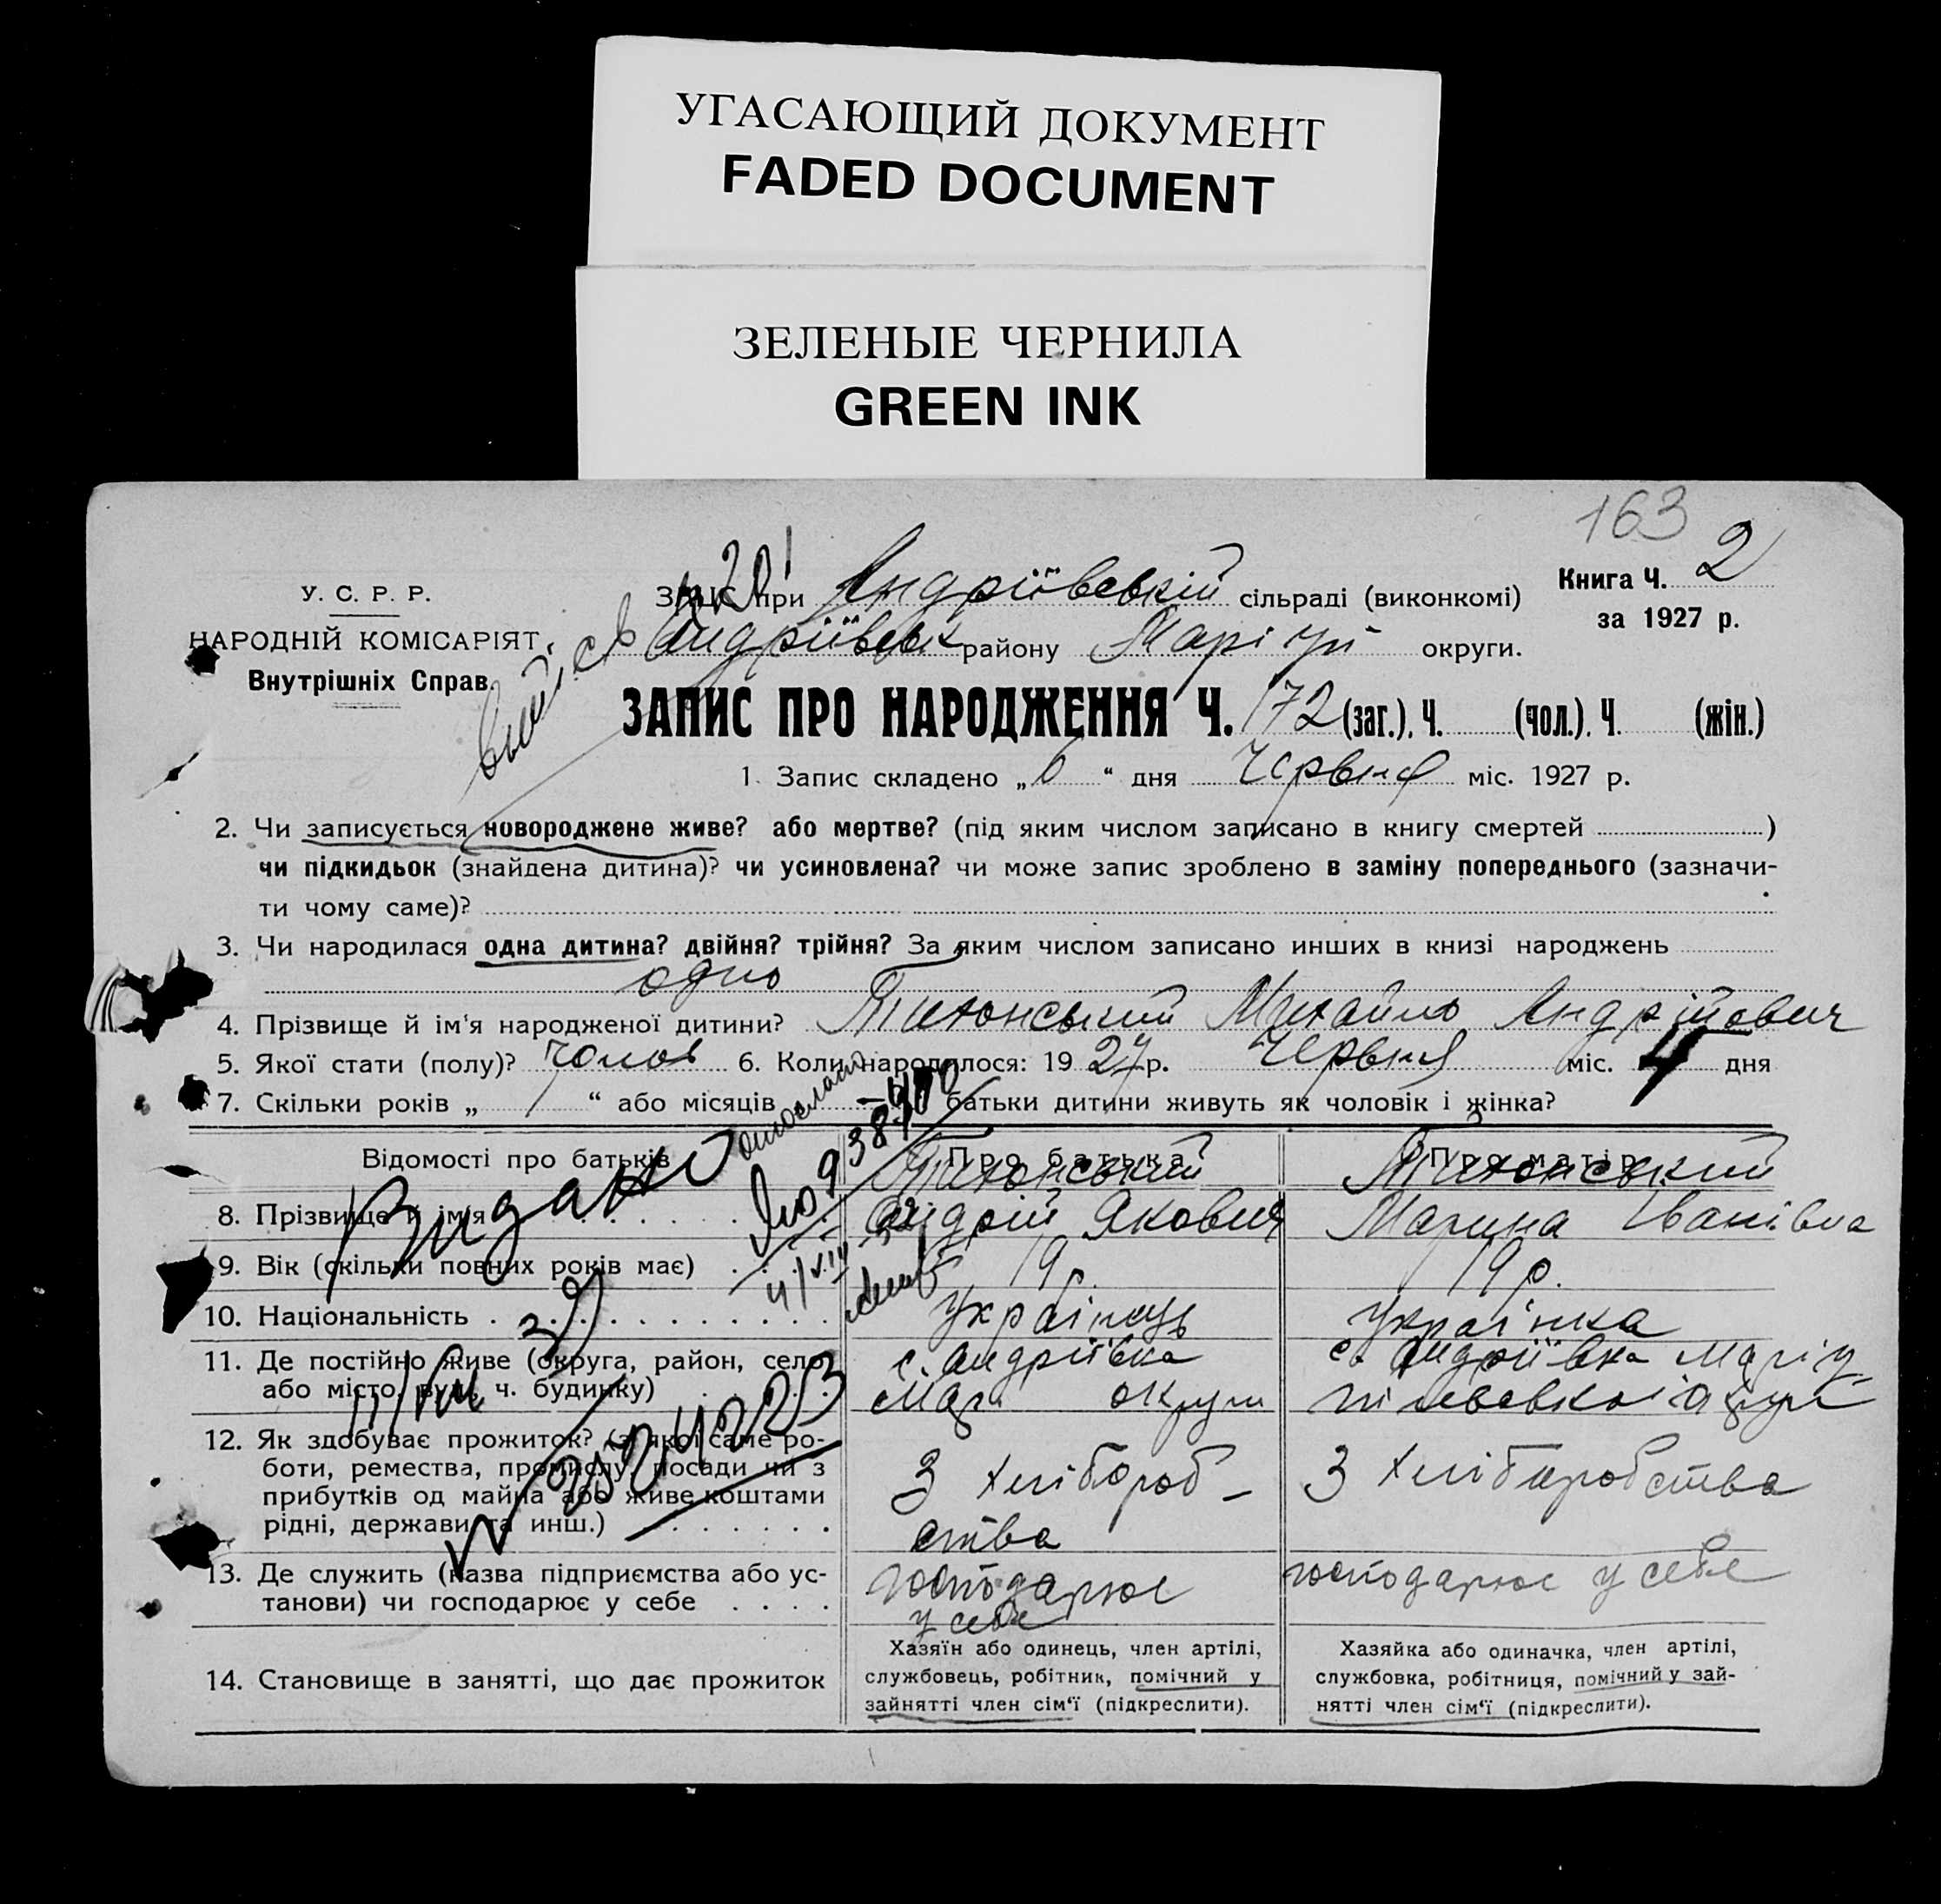 УГАСАЮЩИЙ ДОКУМЕНТ
FADED DOCUMENT
ЗЕЛЕНЫЕ ЧЕРНИЛА
GREEN INK
163
У. С. Р. Р.
НАРОДНІЙ КОМІСАРІЯТ
Внутрішніх Справ.
ЗАЦС при Андріївській сільраді (виконкомі)
Книга Ч. 2
за 1927 р.
Андріївськ району Маріуп округи.
ЗАПИС ПРО НАРОДЖЕННЯ Ч. 172 (заг.). Ч. (чол.). Ч. (жін.)
1. Запис складено „6“ дня Червня міс. 1927 р.
2. Чи записується новороджене живе? або мертве? (під яким числом записано в книгу смертей )
чи підкидьок (знайдена дитина)? чи усиновлена? чи може запис зроблено в заміну попереднього (зазначи-
ти чому саме)?
3. Чи народилася одна дитина? двійня? трійня? За яким числом записано инших в книзі народжень
одно
4. Прізвище й ім'я народженої дитини? Тихонський Михайло Андрійович
5. Якої стати (полу)? чолов 6. Коли народилося: 1927 р. Червня міс. 4 дня
7. Скільки років „1“ або місяців батьки дитини живуть як чоловік і жінка?
Відомості про батьків Про батька Про матір
Тихонський Тихонський
8. Прізвище й ім'я Андрій Якович Марина Іванівна
9. Вік (скільки повних років має) 19 р. 19 р.
10. Національність Українець Українка
11. Де постійно живе (округа, район, село с. Андріївка с. Андріївка Маріу-
або місто, вул., ч. будинку) Марі округи пілевської округи
12. Як здобуває прожиток? (з якої саме ро-
боти, ремества, промислу, посади чи з
прибутків од майна або живе коштами
рідні, держави та инш.)
З хлібороб-
ства
З хліборобства
13. Де служить (назва підприємства або ус-
танови) чи господарює у себе
господарює
у себе
господарює у себе
14. Становище в занятті, що дає прожиток
Хазяїн або одинець, член артілі,
службовець, робітник, помічний у
зайнятті член сім'ї (підкреслити).
Хазяйка або одиначка, член артілі,
службовка, робітниця, помічний у зай-
нятті член сім'ї (підкреслити).
Видано